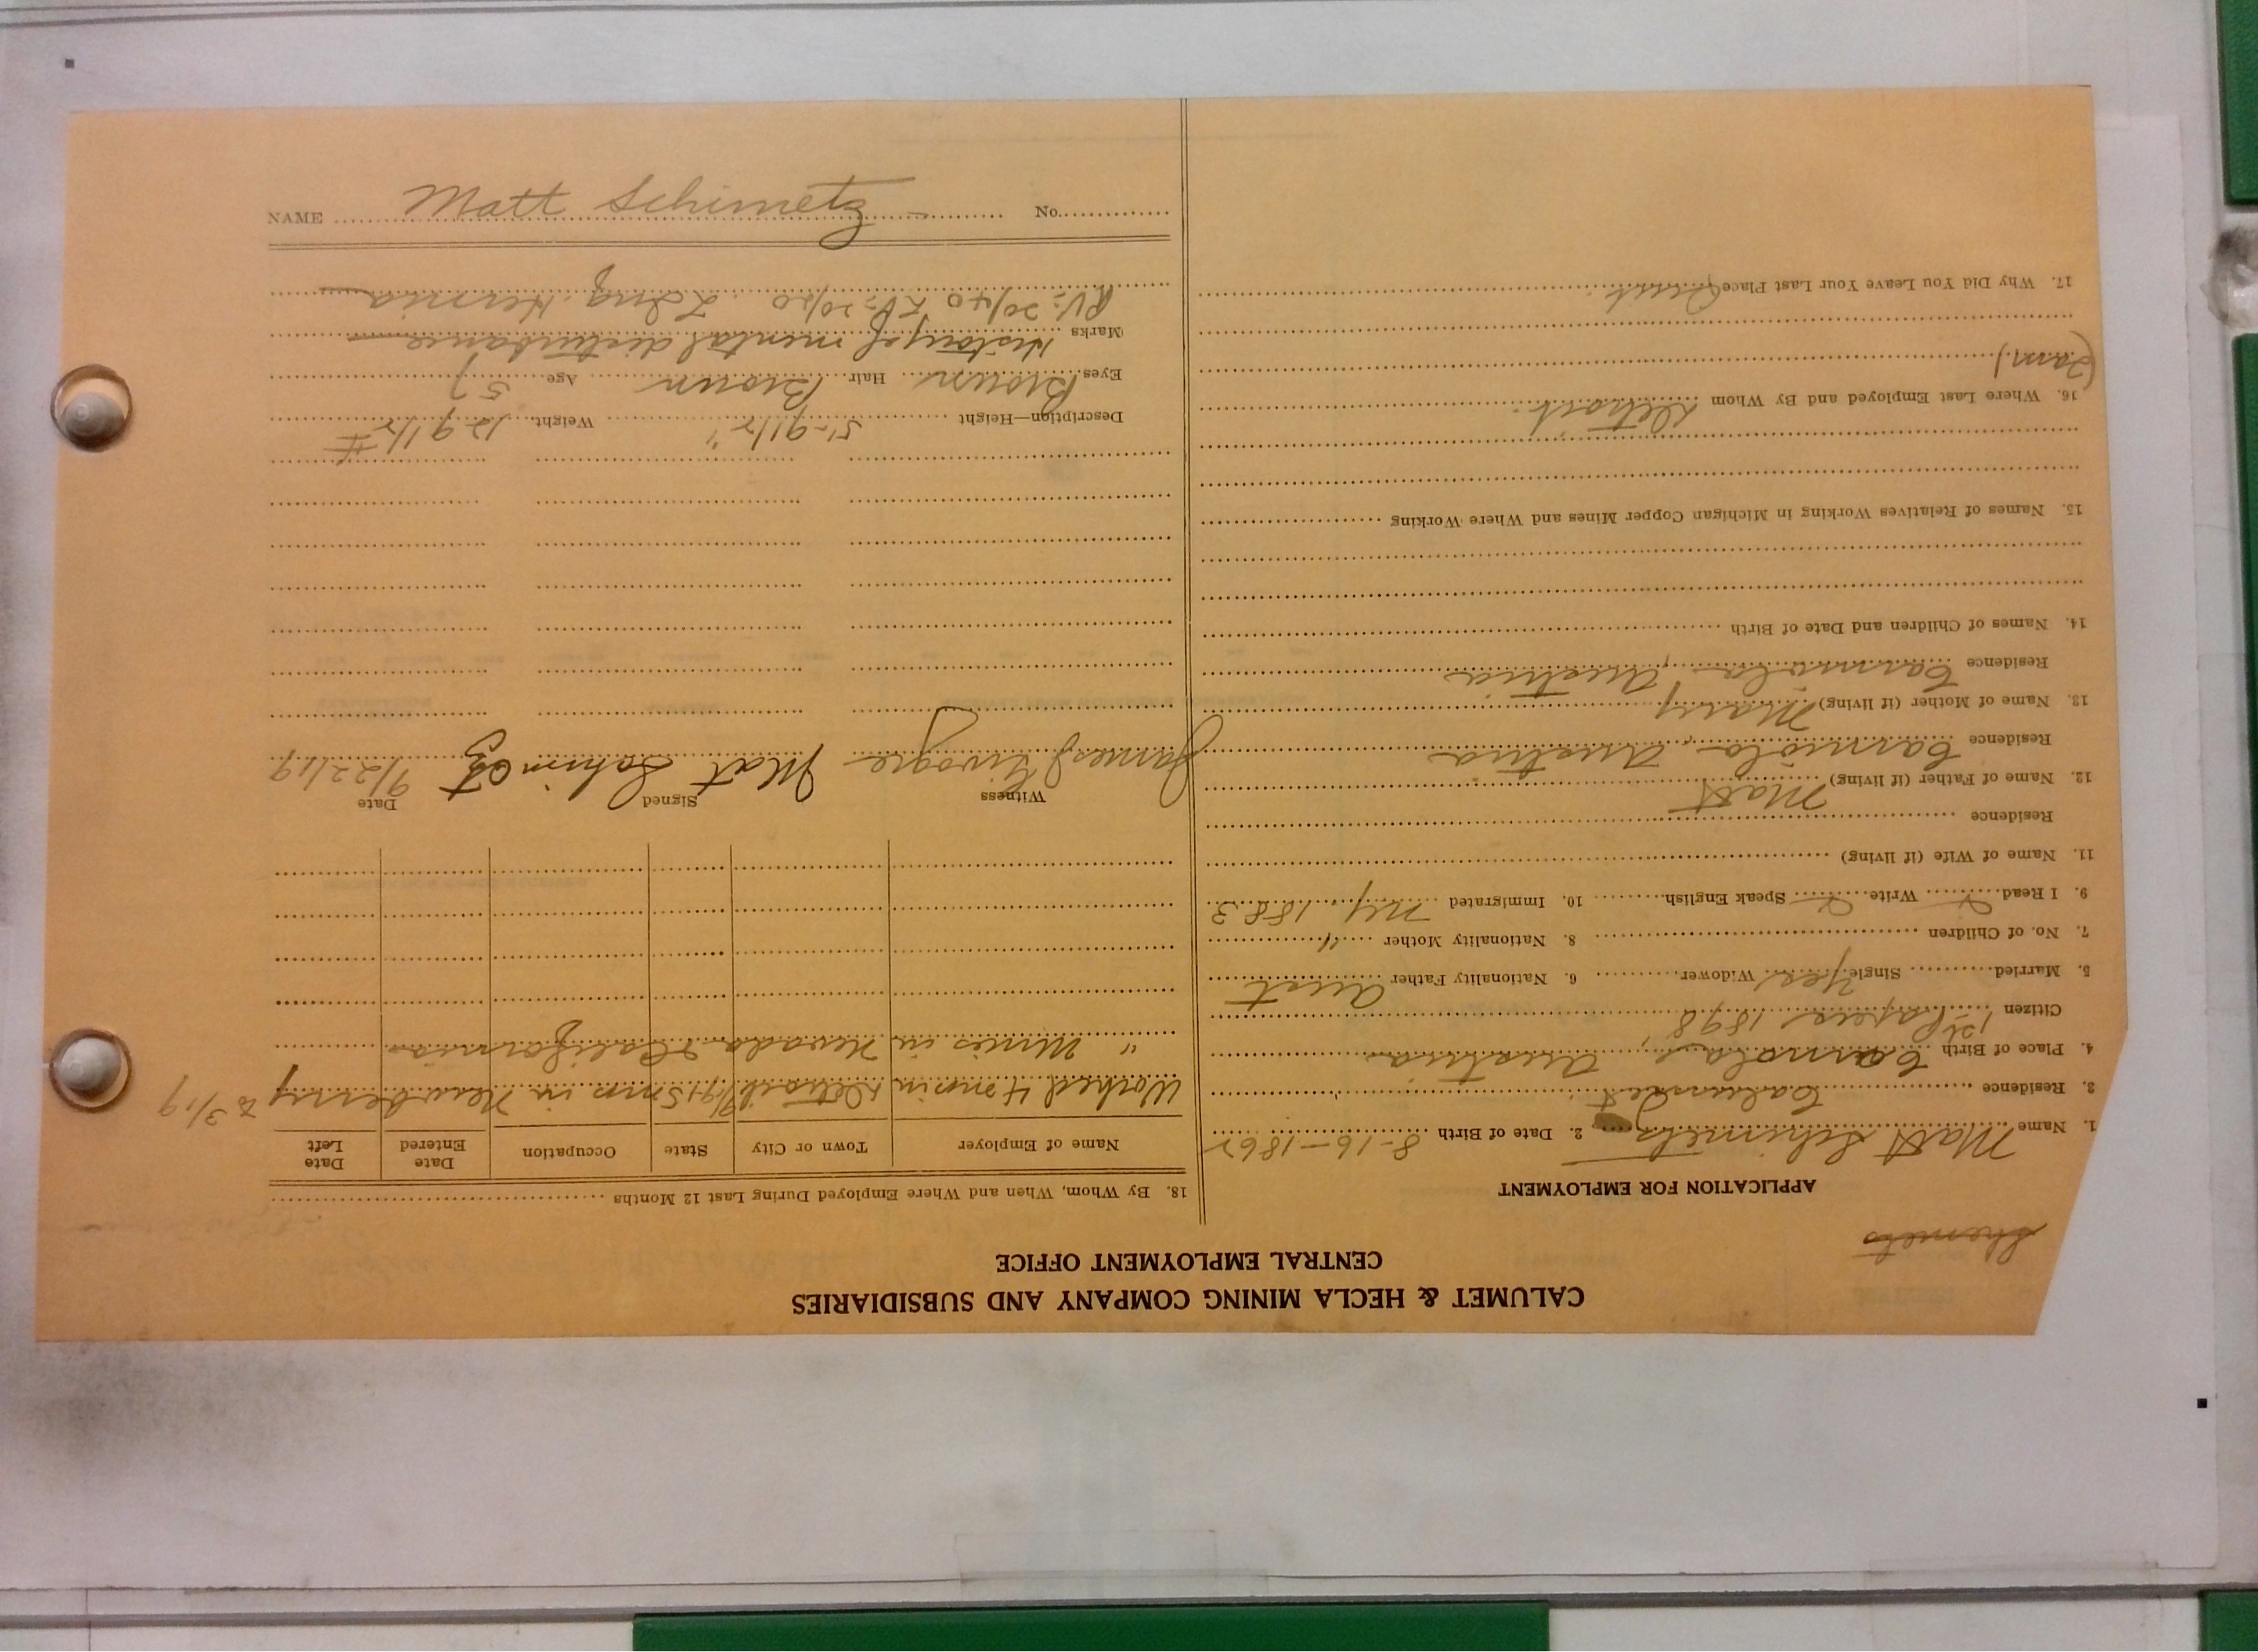 CALUMET & HECLA MINING COMPANY AND SUBSIDIARIES
CENTRAL EMPLOYMENT OFFICE
Shemets
APPLICATION FOR EMPLOYMENT
1. Name Matt Schimets 2. Date of Birth 8-16-1862
3. Residence Calumet
4. Place of Birth Carnola, Austria
Citizen 1st Papers 1898
5. Married Single Yes Widower 6. Nationality Father Aust
7. No. of Children 8. Nationality Mother "
9. I Read Write Speak English 10. Immigrated NY 1883
11. Name of Wife (if living)
Residence
12. Name of Father (if living) Matt
Residence Carniola, Austria
13. Name of Mother (if living) Mary
Residence Carniola, Austria
14. Names of Children and Date of Birth
15. Names of Relatives Working in Michigan Copper Mines and Where Working
16. Where Last Employed and By Whom Detroit.
17. Why Did You Leave Your Last Place Quit.
18. By Whom, When and Where Employed During Last 12 Months
Name of Employer Town or City State Occupation Date Entered Date Left
Worked 4 mo in Detroit 9/19 15 mo in Newberry to 3/19
" Mines in Nevada & California
Witness Signed Date
James Mat Schimetz 9/22/19
Description—Height 5'-9 1/2" Weight 129 1/2 #
Eyes Brown Hair Brown Age 57
Marks History of mental disturbance
RV=20/40 LV=20/20 Hernia
NAME Matt Schimetz No.